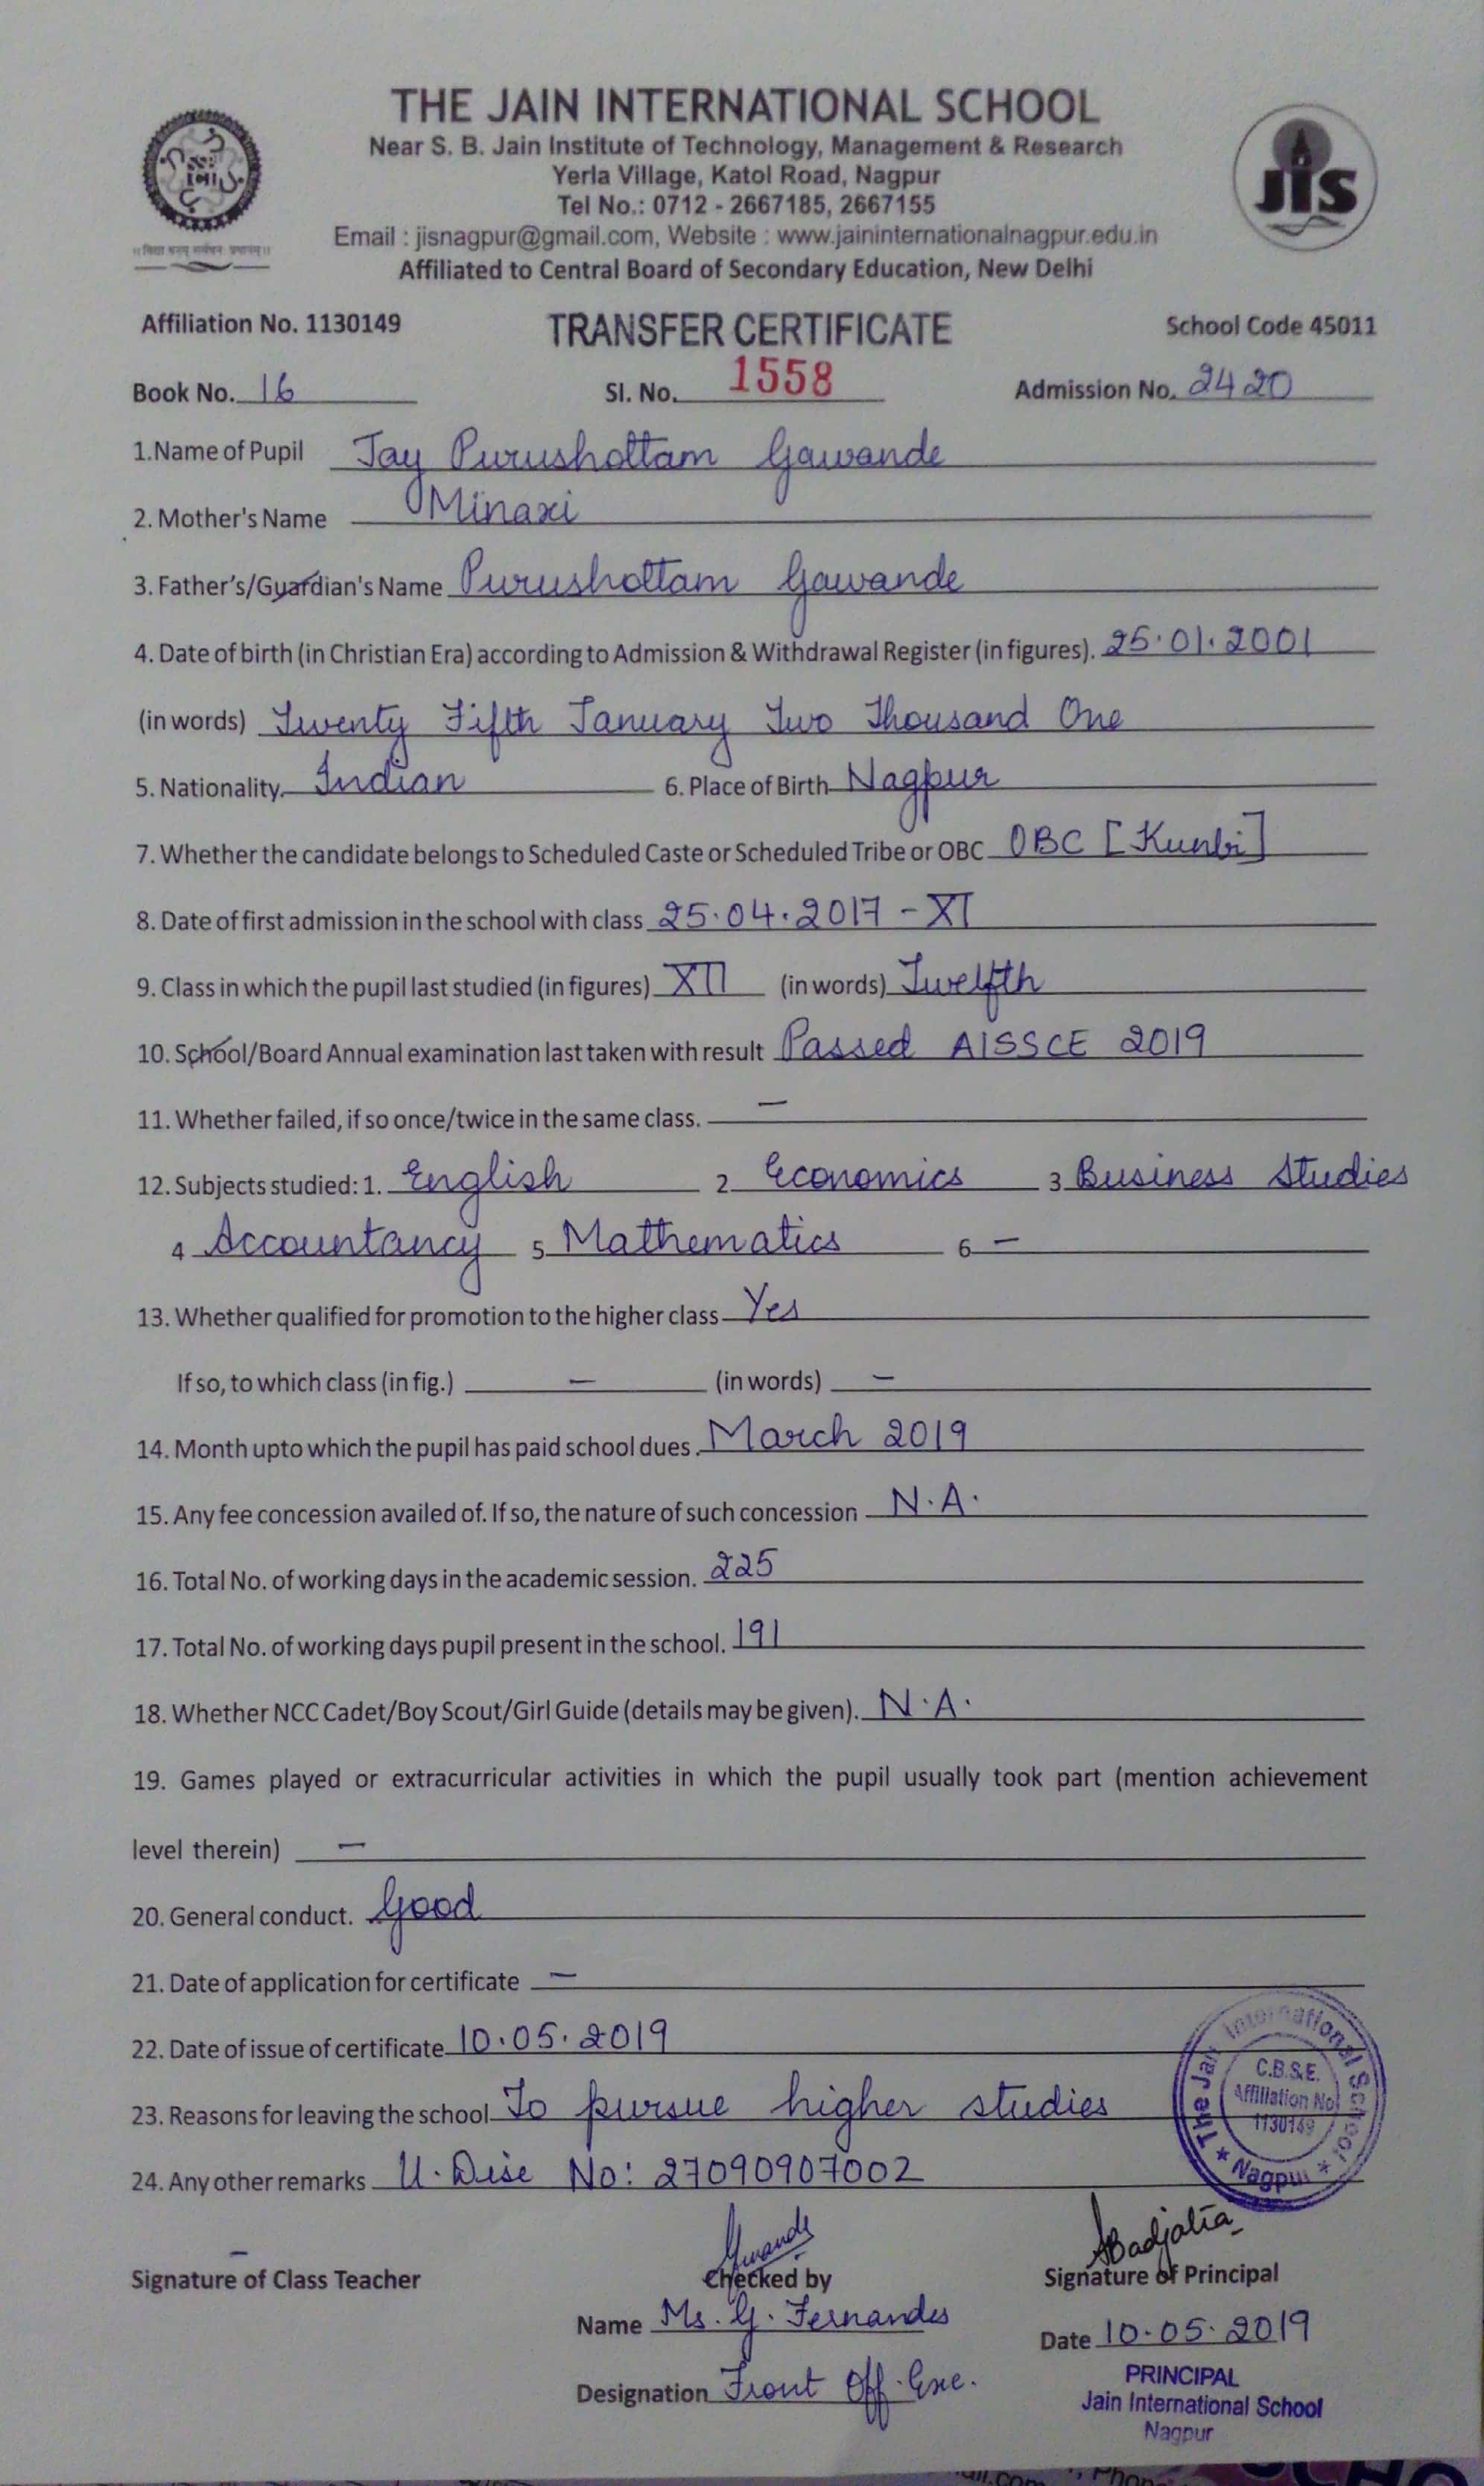 THE JAIN INTERNATIONAL SCHOOL
Near S. B. Jain Institute of Technology, Management & Research
Yerla Village, Katol Road, Nagpur
Tel No.: 0712 - 2667185, 2667155
Email : jisnagpur@gmail.com, Website : www.jaininternationalnagpur.edu.in
Affiliated to Central Board of Secondary Education, New Delhi
JIS
Affiliation No. 1130149 TRANSFER CERTIFICATE School Code 45011
Book No. 16 Sl. No. 1558 Admission No. 2420
1.Name of Pupil Jay Purushottam Gawande
2. Mother's Name Minaxi
3. Father's/Guardian's Name Purushottam Gawande
4. Date of birth (in Christian Era) according to Admission & Withdrawal Register (in figures). 25.01.2001
(in words) Twenty Fifth January Two Thousand One
5. Nationality. Indian 6. Place of Birth Nagpur
7. Whether the candidate belongs to Scheduled Caste or Scheduled Tribe or OBC OBC [Kunbi]
8. Date of first admission in the school with class 25.04.2017 - XI
9. Class in which the pupil last studied (in figures) XII (in words) Twelfth
10. School/Board Annual examination last taken with result Passed AISSCE 2019
11. Whether failed, if so once/twice in the same class. —
12. Subjects studied: 1. English 2 Economics 3 Business Studies
4 Accountancy 5 Mathematics 6 —
13. Whether qualified for promotion to the higher class Yes
If so, to which class (in fig.) — (in words) —
14. Month upto which the pupil has paid school dues. March 2019
15. Any fee concession availed of. If so, the nature of such concession N.A.
16. Total No. of working days in the academic session. 225
17. Total No. of working days pupil present in the school. 191
18. Whether NCC Cadet/Boy Scout/Girl Guide (details may be given). N.A.
19. Games played or extracurricular activities in which the pupil usually took part (mention achievement
level therein) —
20. General conduct. Good
21. Date of application for certificate —
22. Date of issue of certificate 10.05.2019
23. Reasons for leaving the school To pursue higher studies
24. Any other remarks U. Dise No: 27090907002
The Jain International School
C.B.S.E.
Affiliation No.
1130149
* Nagpur *
—
Signature of Class Teacher Checked by Signature of Principal
Name Ms. G. Fernandes
Date 10.05.2019
Designation Front Off. Exe.
PRINCIPAL
Jain International School
Nagpur